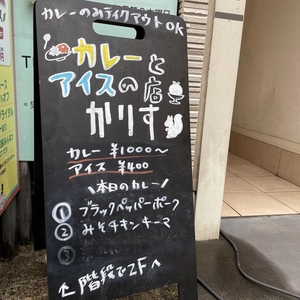 カレーのみテイクアウトOK
カレーと
アイスの店
かりす
カレー ¥1000〜
アイス ¥400
\本日のカレー/
① ブラックペッパーポーク
② みそチキンキーマ
③
階段で2Fへ